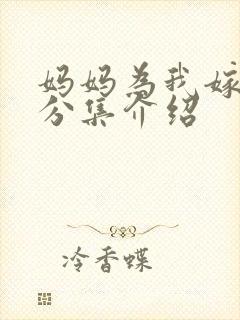 妈妈为我嫁
分集介绍
冷香蝶